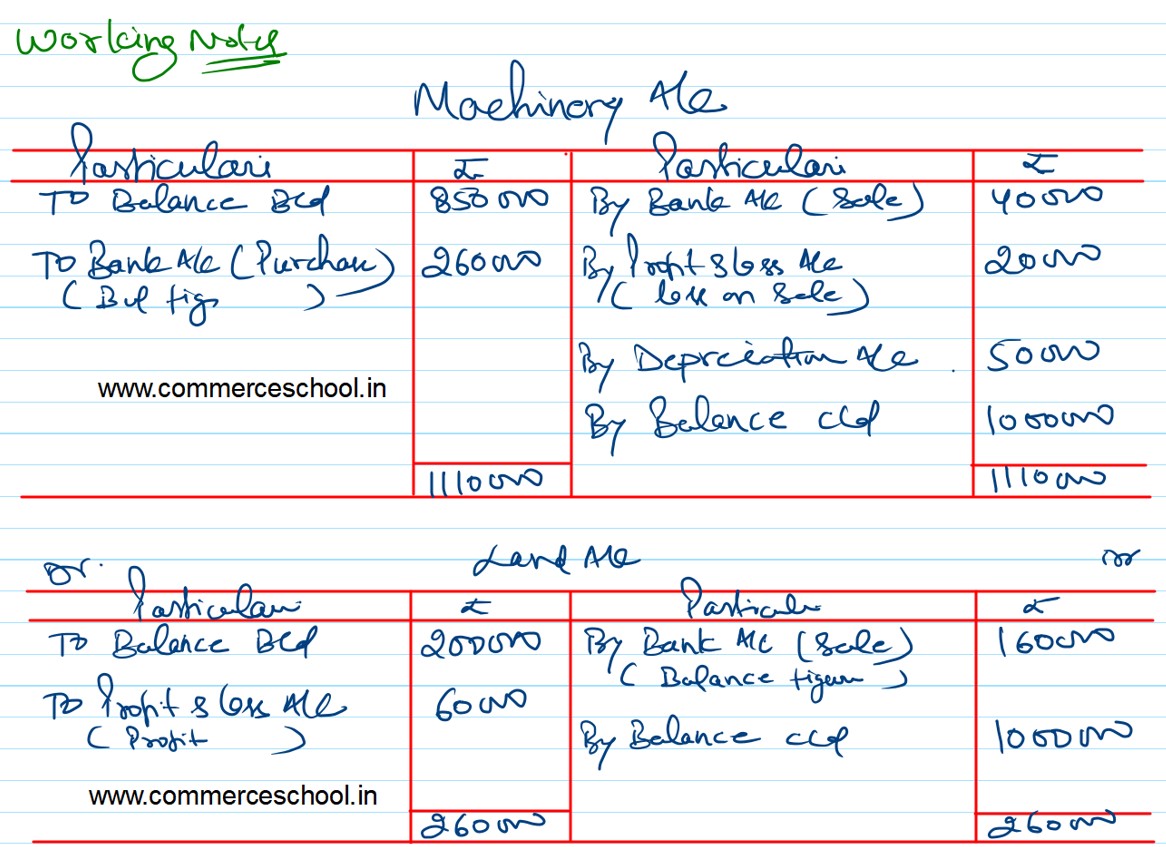 Working Notes
Machinery A/c
Particulars ₹ Particulars ₹
To Balance B/d 850000 By Bank A/c (Sale) 40000
To Bank A/c (Purchase) 260000 By Profit & Loss A/c 20000
(Bal fig) (loss on Sale)
By Depreciation A/c 50000
www.commerceschool.in
By Balance c/d 1000000
1110000 1110000
Dr. Land A/c Cr
Particulars ₹ Particulars ₹
To Balance B/d 200000 By Bank A/c (Sale) 160000
(Balance figure)
To Profit & Loss A/c 60000
(Profit) By Balance c/d 1000000
www.commerceschool.in
260000 260000